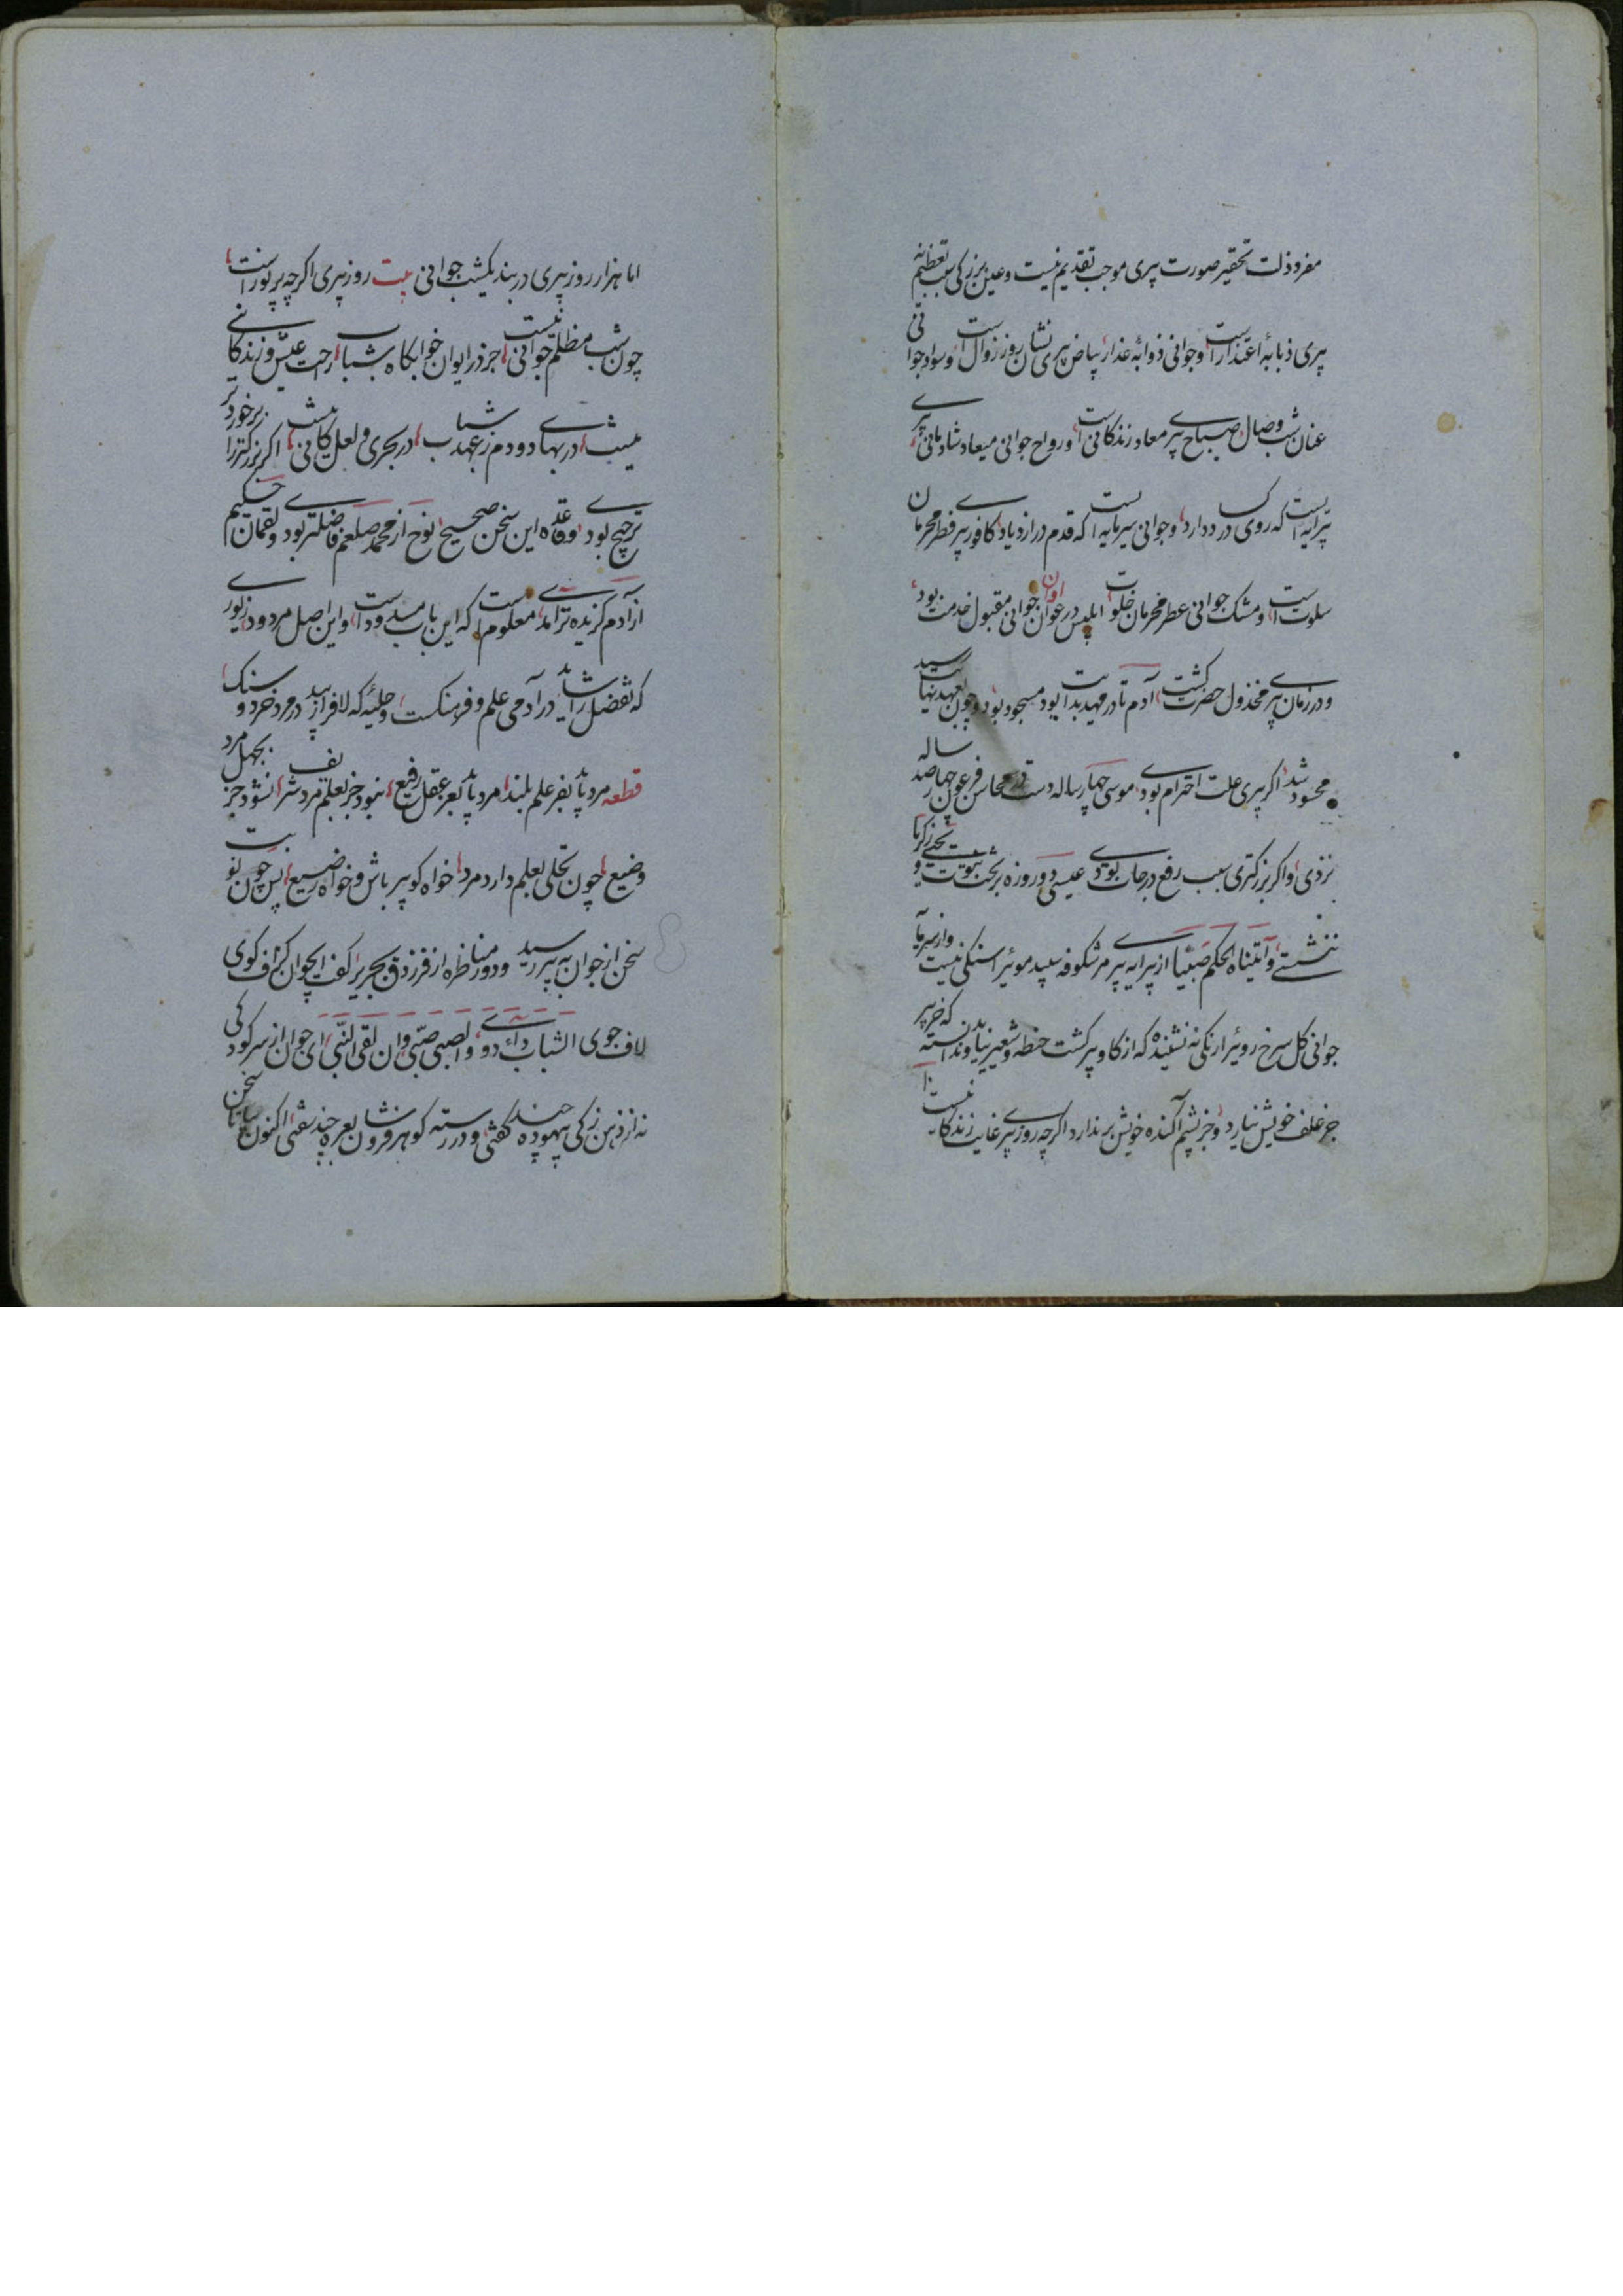 مغرو ذلت تحقیر صورت پیری موجب تقدیم نیست و عین بزرکی سبب تعظیم نه
پیری ذبابهٔ اعتذارست و جوانی ذوابهٔ عذار بیاض پیری نشان روز زوال است و سواد جوانی
عنان شب وصال صباح پیری معاد زندکانی است و رواح جوانی میعاد شادمانی
پیرایه است که روی کساد دارد و جوانی سرمایه است که قدم در ازدیاد کافور پیری فطر محرمان
سلوت است و مشک جوانی عطر محرمان خلوت ابلیس در عوان اوان جوانی مقبول خدمت بود
و در زمان پیری مخذول حضرت کشت آدم تا در مهد بدایت بود مسجود بود و چون بعهد نهایت رسید
محسود شد اکر پیری علت احترام بودی موسی چهار ساله دست در محاسن فرعون چهارصد ساله
نزدی و اکر بزرکتری سبب رفع درجات بودی عیسی دو روزه بر تخت نبوت و یحیی زکریا
ننشستی و آتیناه الحکم صبیا از پیرایه پیری مر شکوفه سپید موئیرا سنکی نیست و از سرمایه
جوانی کل سرخ روئیرا رنکی نه نشنیده که از کاو پیر کشت حنطه و شعیر نیاید و ندانسته که خر پیر
جز علف خویش نیارد و جز پشم آکنده خویش برندارد اکرچه روز پیری غایت زندکانیست
اما هزار روز پیری در بند یکشب جوانی بیت روز پیری اکرچه پر نور است
چون شب مظلم جوانی نیست جز در ایوان خوابکاه شباب راحت عیش و زندکانی
نیست در بهای دو دم ز عهد شباب در بحری و لعل کانی نیست اکر بزرکتر را بر خوردتر
ترجیح بودی و قاعده این سخن صحیح نوح از محمد صلعم فاضلتر بودی و لقمان حکیم
از آدم کزیده‌تر آمدی معلوم است که این باب مسدود است و این اصل مردود زیوری
که تفضل را شاید در آدمی علم و فرهنکست و حلیه که لافرا زیبد در مرد خرد و سنک
قطعه مرد باید بفر علم بلند مرد باید بعز عقل رفیع نبود جز بعلم مرد شریف نشود جز بجهل مرد
وضیع چون تحلی بعلم دارد مرد خواه کو پیر باش و خواه رضیع پس چون نوبت
سخن از جوان به پیر رسید و دور مناظره از فرزدق بجریر کفت ایجوان کزاف کوی
لاف جوی الشباب داء دوی و الصبی صبی و ان لقی النبی ای جوان از سر کودکی
نه از ذهن زکی بیهوده چند کفتی و در رسته کوهر فروشان بعره چند سفتی اکنون بیا تا سخن